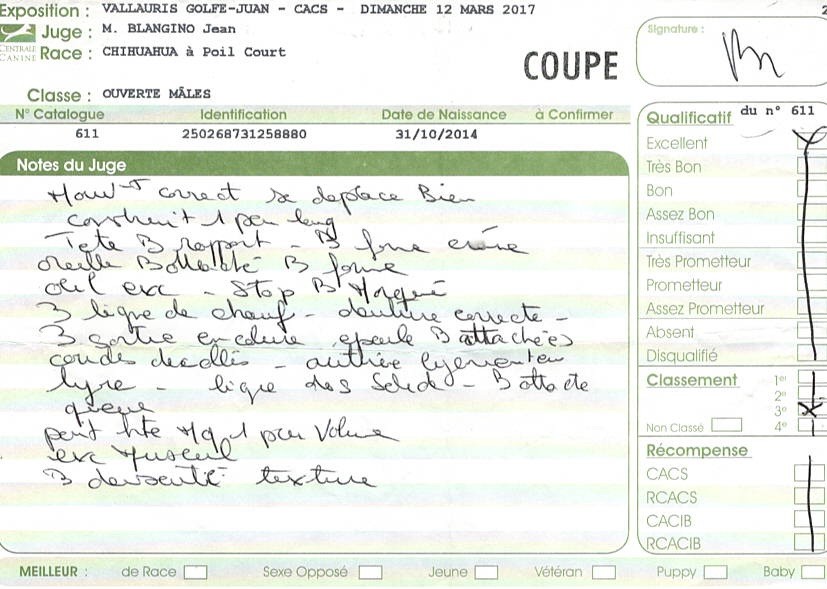 Exposition : VALLAURIS GOLFE-JUAN - CACS - DIMANCHE 12 MARS 2017
Juge : M. BLANGINO Jean
CENTRALE CANINE
Race : CHIHUAHUA à Poil Court
COUPE
Signature :
Classe : OUVERTE MÂLES
N° Catalogue Identification Date de Naissance à Confirmer
611 250268731258880 31/10/2014
Qualificatif du n° 611
Excellent
Très Bon
Bon
Assez Bon
Insuffisant
Très Prometteur
Prometteur
Assez Prometteur
Absent
Disqualifié
Classement 1er
2e
3e X
Non Classé 4e
Récompense
CACS
RCACS
CACIB
RCACIB
Notes du Juge
Mouvt correct se deplace Bien
construit 1 peu long
Tete B rapport - B forme crâne
oreille B B forme
oeil exc - Stop B Marqué
B ligne de chanf - denture correcte -
B sortie encolure epaule B attachées
coudes decollés -
lyre - ligne dos Solide - B attache
queue
peut être 1 peu Volume
exc
B densité texture
MEILLEUR : de Race Sexe Opposé Jeune Vétéran Puppy Baby